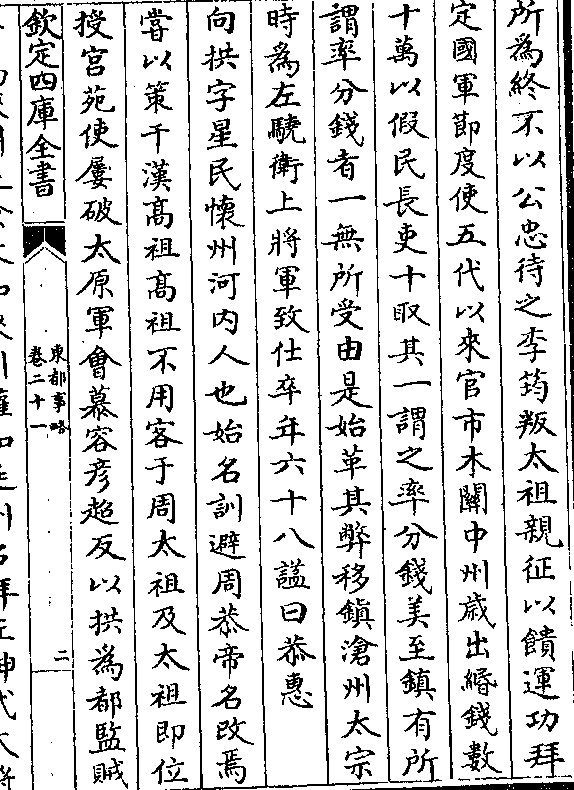 所爲終不以公忠待之李筠叛太祖親征以饋運功拜
定國軍節度使五代以來官市木關中州歲出緡錢數
十萬以假民長吏十取其一謂之率分錢美至鎮有所
謂率分錢者一無所受由是始革其弊移鎮滄州太宗
時爲左驍衛上將軍致仕卒年六十八諡曰恭惠
向拱字星民懷州河内人也始名訓避周恭帝名改焉
嘗以策干漢髙祖髙祖不用客于周太祖及太祖即位
授宫苑使屢破太原軍會慕容彦超反以拱爲都監賊
欽定四庫全書
東都事略
卷二十一
二